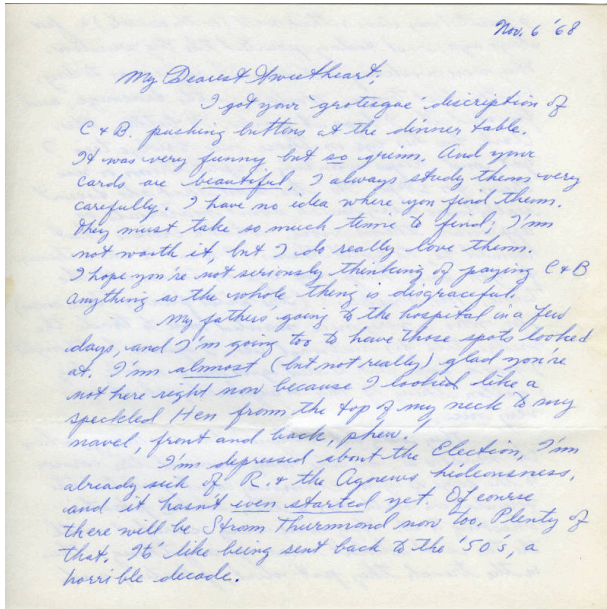 Nov. 6 '68
My Dearest Sweetheart;
I got your "grotesque" discription of
C & B. pushing buttons at the dinner table.
It was very funny but so grimm. And your
cards are beautiful, I always study them very
carefully. I have no idea where you find them.
They must take so much time to find; I'm
not worth it, but I do really love them.
I hope you're not seriously thinking of paying C & B
anything as the whole thing is disgraceful.
My fathers going to the hospital in a few
days, and I'm going too to have those spots looked
at. I'm almost (but not really) glad you're
not here right now because I looked like a
speckled Hen from the top of my neck to my
navel, front and back, phew.
I'm depressed about the Election, I'm
already sick of R. & the Agnews hideousness,
and it hasn't even started yet. Of course
there will be Strom Thurmond now too. Plenty of
that. It's like being sent back to the '50's, a
horrible decade.